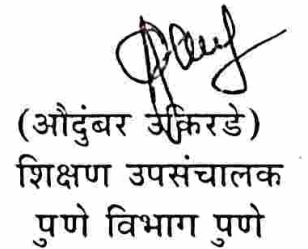 (औदुंबर उकिरडे)
शिक्षण उपसंचालक
पुणे विभाग पुणे